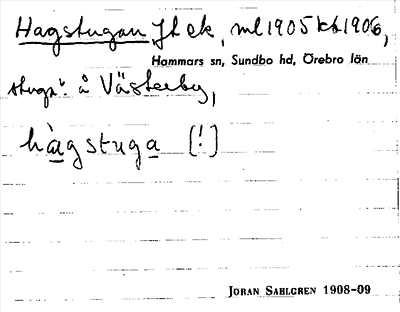 Hagstugan, Jt ek, ml 1905 kbl 1906,
Hammars sn, Sundbo hd, Örebro län
stuga: å Västerby,
hàgstuga [!]
JORAN SAHLGREN 1908-09